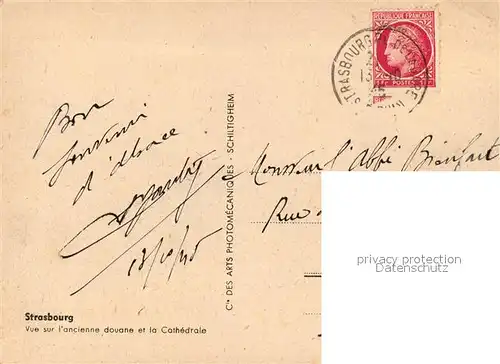 Bon
souvenir
d'alsace
13/10/45
Strasbourg
Vue sur l'ancienne douane et la Cathédrale
Cie DES ARTS PHOTOMÉCANIQUES - SCHILTIGHEIM
RÉPUBLIQUE FRANÇAISE
POSTES
STRASBOURG
Monsieur l'Abbé Bienfait
Rue
privacy protection
Datenschutz